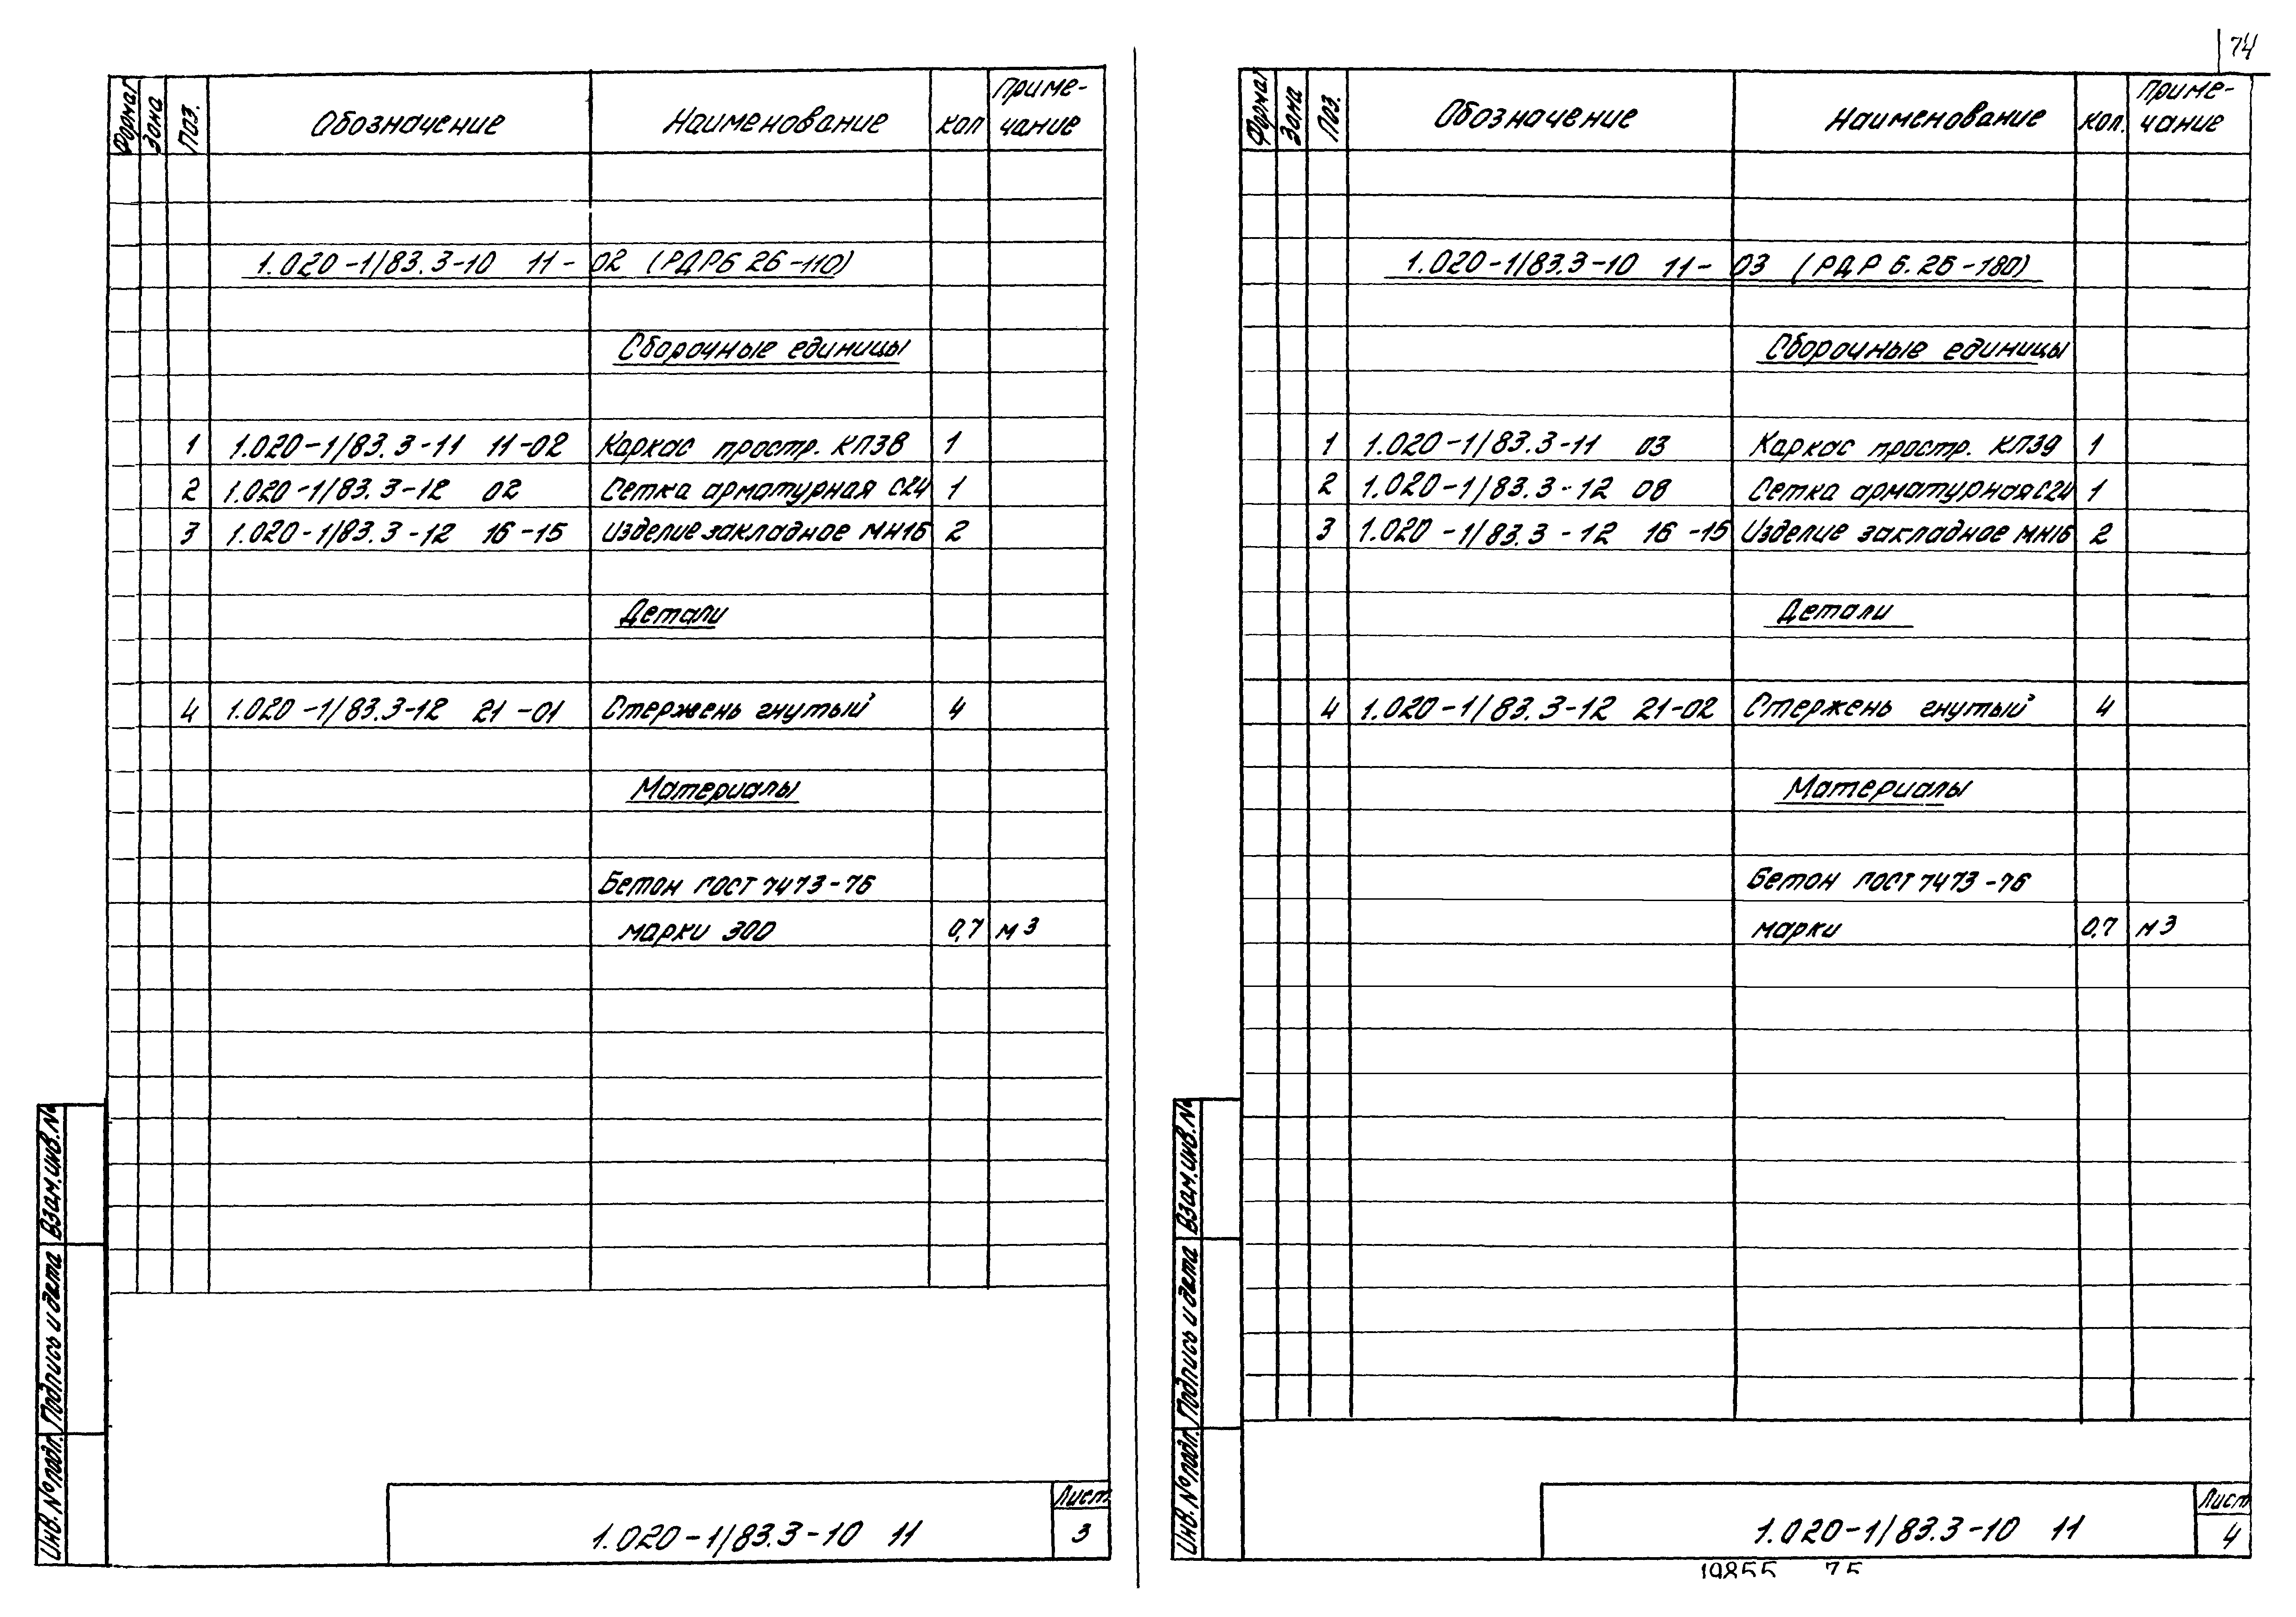 74
Формат Зона Поз. Обозначение Наименование Кол Приме-
чание
1.020-1/83.3-10 11-02 (РДР6 26-110)
Сборочные единицы
1 1.020-1/83.3-11 11-02 Каркас простр. КП38 1
2 1.020-1/83.3-12 02 Сетка арматурная С24 1
3 1.020-1/83.3-12 16-15 Изделие закладное МН16 2
Детали
4 1.020-1/83.3-12 21-01 Стержень гнутый 4
Материалы
Бетон ГОСТ 7473-76
марки 300 0,7 м3
Инв. № подл. Подпись и дата Взам. инв. №
1.020-1/83.3-10 11
Лист
3
Формат Зона Поз. Обозначение Наименование Кол. Приме-
чание
1.020-1/83.3-10 11-03 (РДР 6.26-180)
Сборочные единицы
1 1.020-1/83.3-11 03 Каркас простр. КП39 1
2 1.020-1/83.3-12 08 Сетка арматурная С24 1
3 1.020-1/83.3-12 16-15 Изделие закладное МН16 2
Детали
4 1.020-1/83.3-12 21-02 Стержень гнутый 4
Материалы
Бетон ГОСТ 7473-76
марки 0,7 м3
Инв. № подл. Подпись и дата Взам. инв. №
1.020-1/83.3-10 11
Лист
4
19855 75